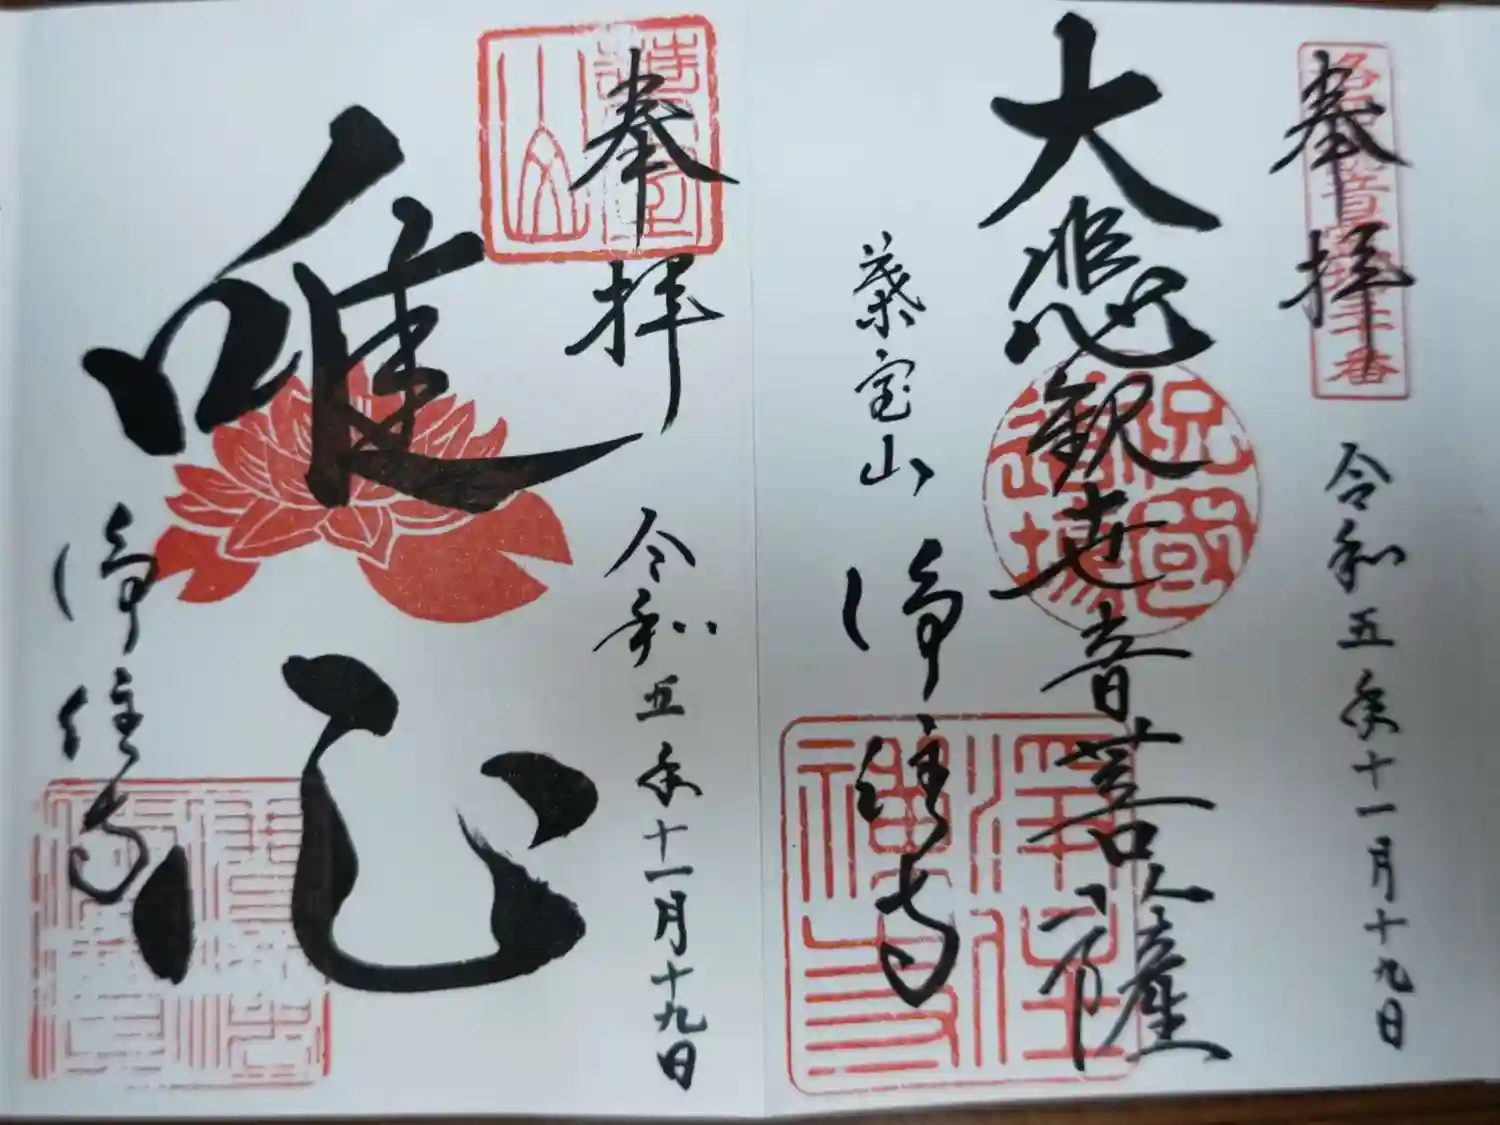 奉拝
令和五年十一月十九日
大悲観世音菩薩
葉室山
浄住寺
奉拝
令和五年十一月十九日
唯心
浄住寺